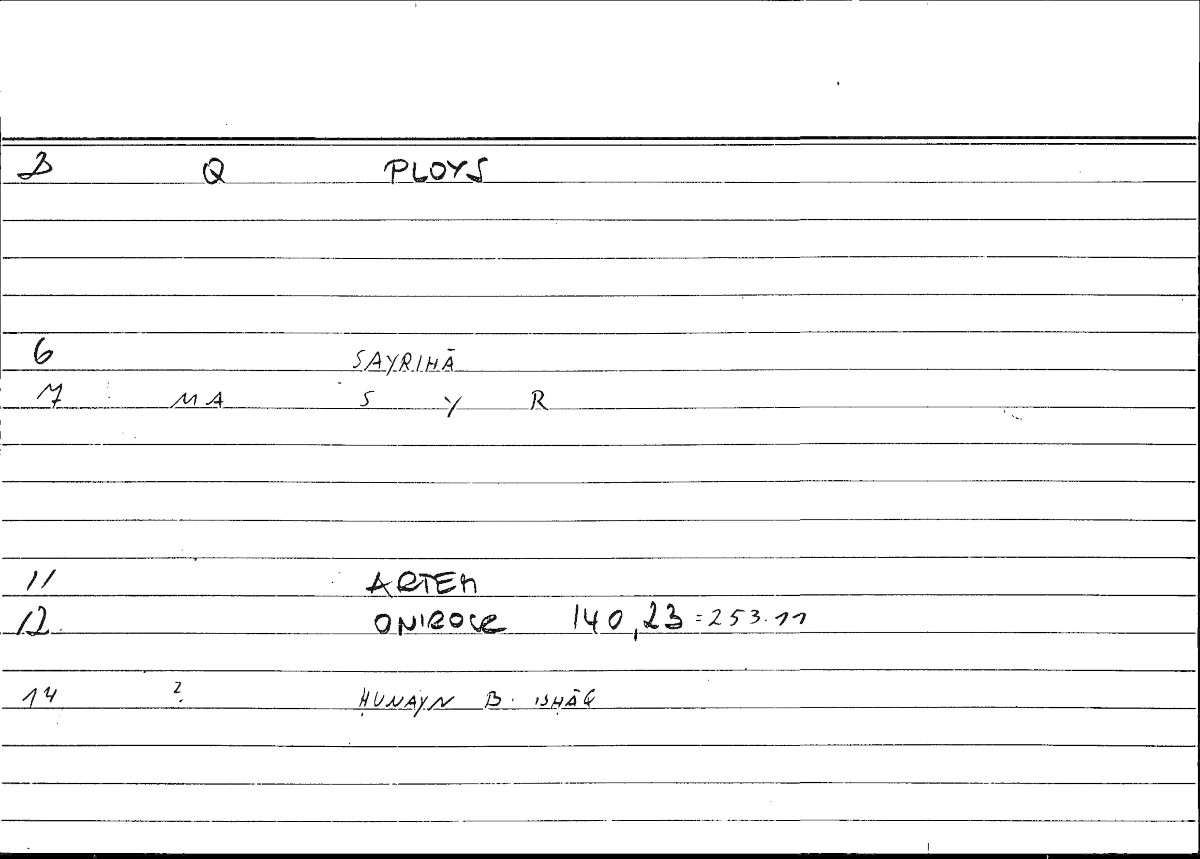 B Q PLOYS
6 SAYRIHĀ
7 MA S Y R
11 ARTEM
12 ONIROCR 140,23 = 253.11
14 ? ḤUNAYN B. ISḤĀQ